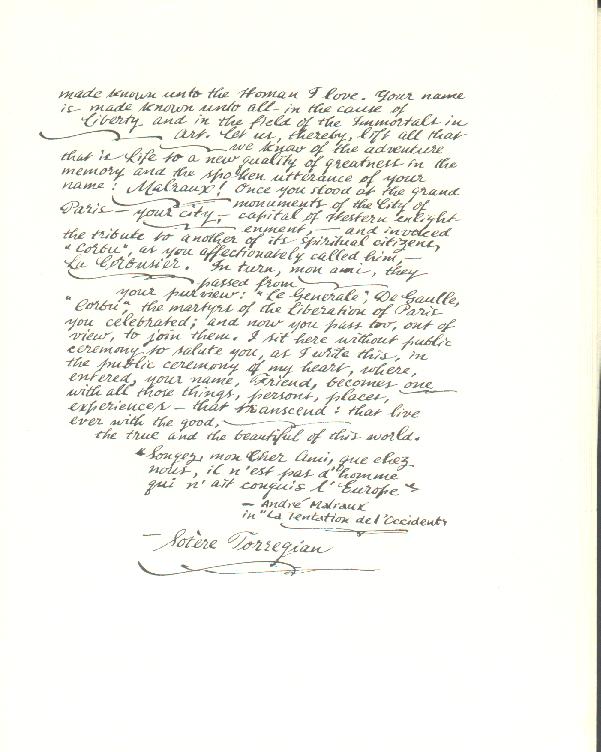 made known unto the Woman I love. Your name
is made known unto all in the cause of
Liberty and in the field of the Immortals in
art. Let us, thereby, lift all that
we know of the adventure
that is Life to a new quality of greatness in the
memory and the spoken utterance of your
name: Malraux! Once you stood at the grand
monuments of the City of
Paris — your city, — capital of Western enlight-
enment, — and invoked
the tribute to another of its spiritual citizens,
"Corbu", as you affectionately called him, —
Le Corbusier. In turn, mon ami, they
passed from
your purview: "Le Generale", De Gaulle,
"Corbu", the martyrs of the Liberation of Paris
you celebrated; and now you pass too, out of
view, to join them. I sit here without public
ceremony to salute you, as I write this, in
the public ceremony of my heart, where,
entered, your name, Friend, becomes one
with all those things, persons, places,
experiences — that transcend: that live
ever with the good,
the true and the beautiful of this world.
"Songez, mon Cher Ami, que chez
nous, il n'est pas d'homme
qui n'ait conquis l'Europe"
— André Malraux
in "La Tentation de l'Occident"
— Sotère Torregian